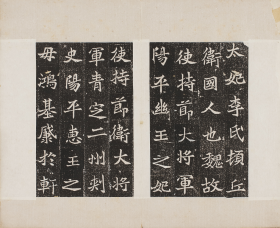 太妃李氏頓丘
衛國人也魏故
使持節大將軍
陽平幽王之妃
使持節衛大將
軍青定二州刺
史陽平惠王之
母鴻基縻於軒